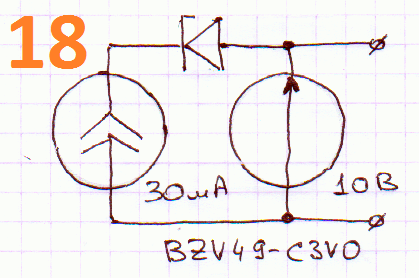 18
30мА
10В
BZV49-C3V0